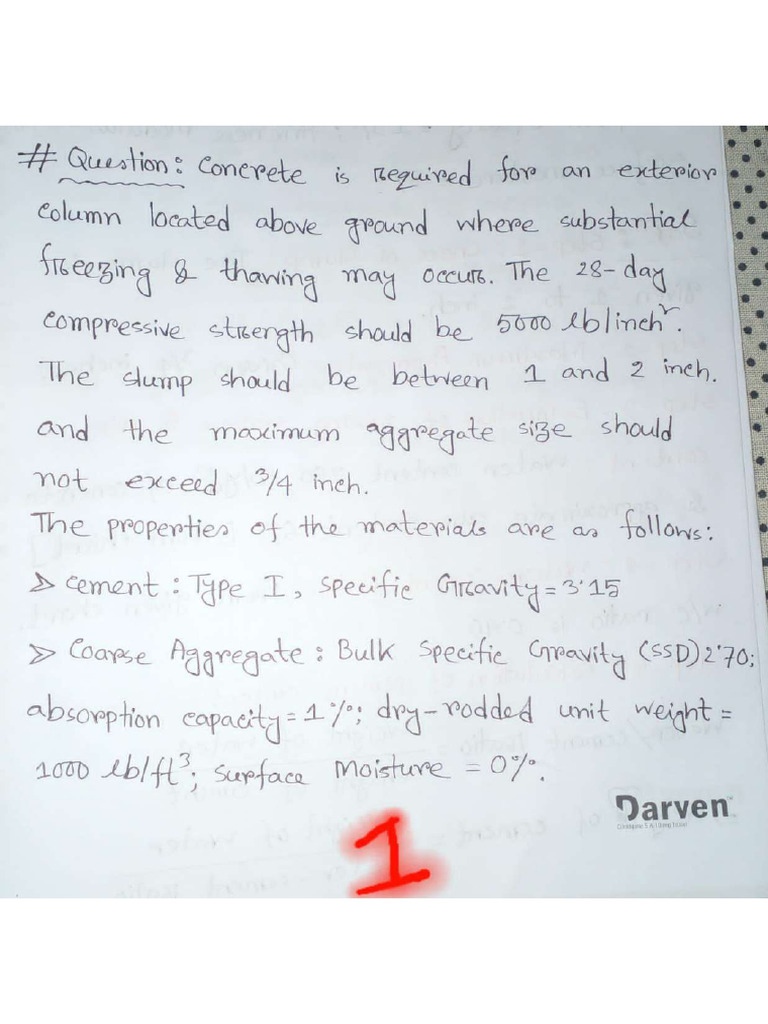 # Question: Concrete is required for an exterior
column located above ground where substantial
freezing & thawing may occur. The 28-day
compressive strength should be 5000 lb/inch².
The slump should be between 1 and 2 inch.
and the maximum aggregate size should
not exceed 3/4 inch.
The properties of the materials are as follows:
> Cement: Type I, Specific Gravity = 3.15
> Coarse Aggregate: Bulk Specific Gravity (SSD) 2.70;
absorption capacity = 1%; dry-rodded unit weight =
1000 lb/ft³; Surface Moisture = 0%.
Darven
1